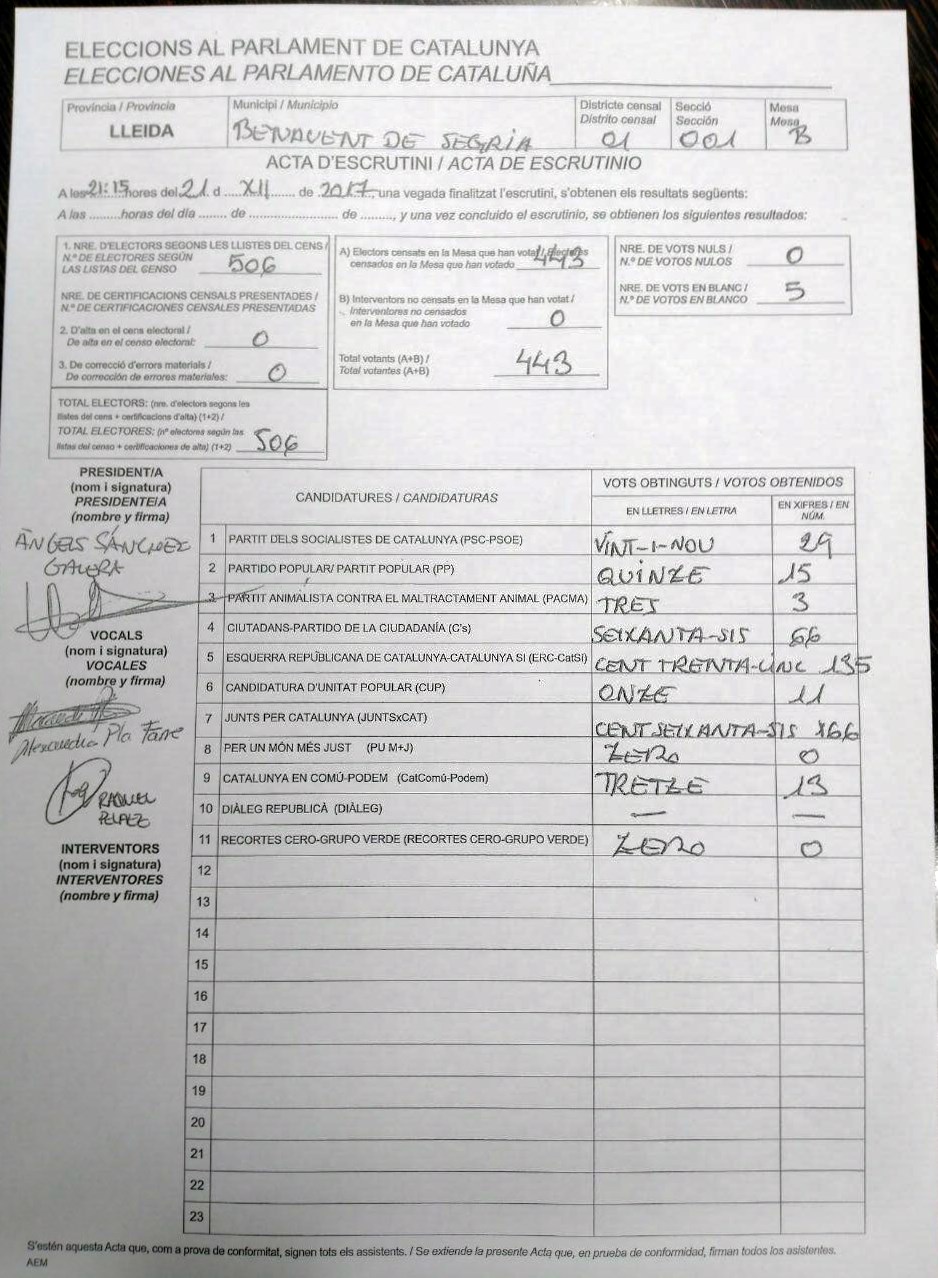 ELECCIONS AL PARLAMENT DE CATALUNYA
ELECCIONES AL PARLAMENTO DE CATALUÑA
Província / Provincia
LLEIDA
Municipi / Municipio
BENAVENT DE SEGRIA
Districte censal
Distrito censal
01
Secció
Sección
001
Mesa
Mesa
B
ACTA D'ESCRUTINI / ACTA DE ESCRUTINIO
A les 21:15 hores del 21 d ..... XII ..... de 2017, una vegada finalitzat l'escrutini, s'obtenen els resultats següents:
A las .........horas del día ........ de ........................ de ........, y una vez concluido el escrutinio, se obtienen los siguientes resultados:
1. NRE. D'ELECTORS SEGONS LES LLISTES DEL CENS /
N.º DE ELECTORES SEGÚN
LAS LISTAS DEL CENSO 506
NRE. DE CERTIFICACIONS CENSALS PRESENTADES /
N.º DE CERTIFICACIONES CENSALES PRESENTADAS
2. D'alta en el cens electoral /
De alta en el censo electoral: 0
3. De correcció d'errors materials /
De corrección de errores materiales: 0
TOTAL ELECTORS: (nre. d'electors segons les
llistes del cens + certificacions d'alta) (1+2) /
TOTAL ELECTORES: (nº electores según las
listas del censo + certificaciones de alta) (1+2) 506
A) Electors censats en la Mesa que han votat / Electores
censados en la Mesa que han votado 443
B) Interventors no censats en la Mesa que han votat /
Interventores no censados
en la Mesa que han votado 0
Total votants (A+B) /
Total votantes (A+B) 443
NRE. DE VOTS NULS /
N.º DE VOTOS NULOS 0
NRE. DE VOTS EN BLANC /
N.º DE VOTOS EN BLANCO 5
PRESIDENT/A
(nom i signatura)
PRESIDENTE/A
(nombre y firma)
ÀNGELS SÁNCHEZ
GALERA
VOCALS
(nom i signatura)
VOCALES
(nombre y firma)
Pla Farre
RAQUEL
PELAEZ
INTERVENTORS
(nom i signatura)
INTERVENTORES
(nombre y firma)
CANDIDATURES / CANDIDATURAS
VOTS OBTINGUTS / VOTOS OBTENIDOS
EN LLETRES / EN LETRA
EN XIFRES / EN
NÚM.
1 PARTIT DELS SOCIALISTES DE CATALUNYA (PSC-PSOE) VINT-I-NOU 29
2 PARTIDO POPULAR/ PARTIT POPULAR (PP) QUINZE 15
3 PARTIT ANIMALISTA CONTRA EL MALTRACTAMENT ANIMAL (PACMA) TRES 3
4 CIUTADANS-PARTIDO DE LA CIUDADANÍA (C's) SEIXANTA-SIS 66
5 ESQUERRA REPUBLICANA DE CATALUNYA-CATALUNYA SI (ERC-CatSI) CENT TRENTA-CINC 135
6 CANDIDATURA D'UNITAT POPULAR (CUP) ONZE 11
7 JUNTS PER CATALUNYA (JUNTSxCAT) CENT SEIXANTA-SIS 166
8 PER UN MÓN MÉS JUST (PU M+J) ZERO 0
9 CATALUNYA EN COMÚ-PODEM (CatComú-Podem) TRETZE 13
10 DIÀLEG REPUBLICÀ (DIÀLEG) — —
11 RECORTES CERO-GRUPO VERDE (RECORTES CERO-GRUPO VERDE) ZERO 0
12
13
14
15
16
17
18
19
20
21
22
23
S'estén aquesta Acta que, com a prova de conformitat, signen tots els assistents. / Se extiende la presente Acta que, en prueba de conformidad, firman todos los asistentes.
AEM